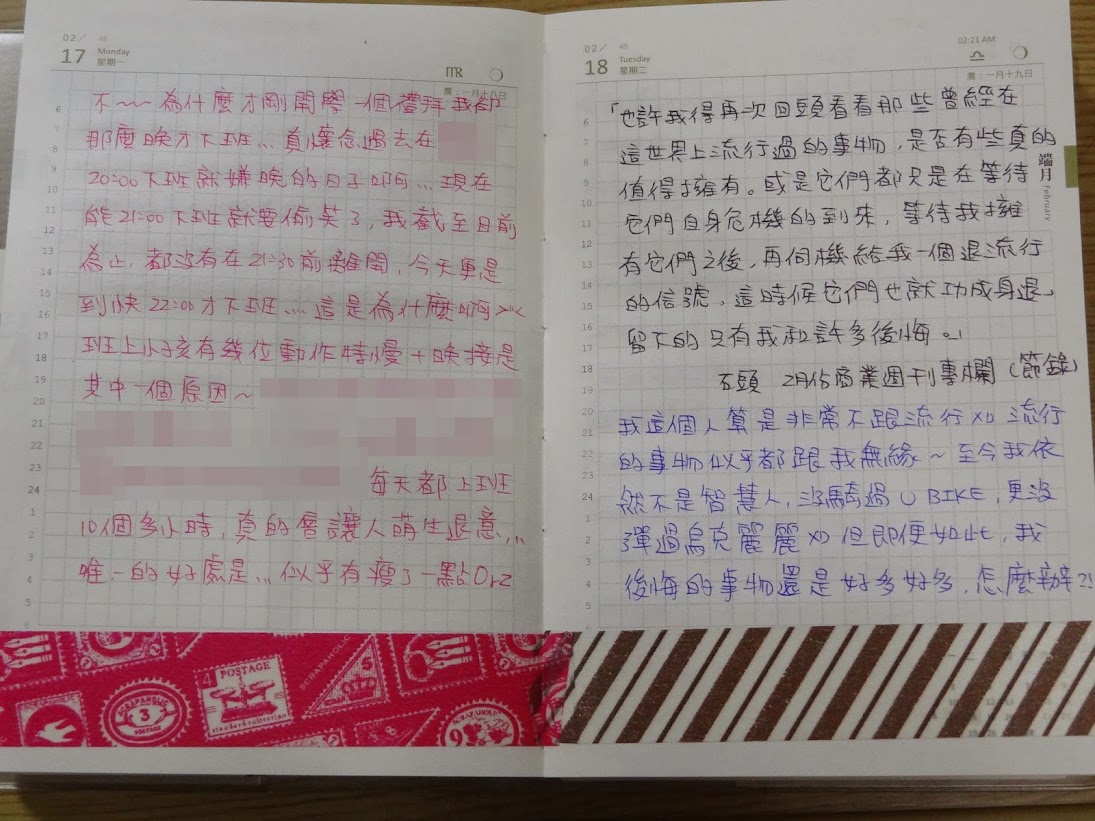 02/
17
48
Monday
星期一
♍
農：一月十八日
不~~為什麼才剛開學一個禮拜我卻
那麼晚才下班...真懷念過去在
20:00下班就嫌晚的日子啊...現在
能21:00下班就要偷笑了，我截至目前
為止，都沒有在21:30前離開，今天更是
到快22:00才下班...這是為什麼啊><
班上小孩有幾位動作特慢+晚接是
其中一個原因~
每天都上班
10個多小時，真的會讓人萌生退意...
唯一的好處是...似乎有瘦了一點Orz
6
7
8
9
10
11
12
13
14
15
16
17
18
19
20
21
22
23
24
1
2
3
4
5
02/
18
49
Tuesday
星期二
02:21 AM
♎
農：一月十九日
「也許我得再次回頭看看那些曾經在
這世界上流行過的事物，是否有些真的
值得擁有。或是它們都只是在等待
它們自身危機的到來，等待我擁
有它們之後，再伺機給我一個退流行
的信號，這時候它們也就功成身退，
留下的只有我和許多後悔。」
石頭 2月份商業週刊專欄（節錄）
我這個人算是非常不跟流行XD 流行
的事物似乎都跟我無緣~至今我依
然不是智慧人，沒騎過U BIKE，更沒
彈過烏克麗麗XD 但即便如此，我
後悔的事物還是好多好多，怎麼辦?!
端月
February
POSTAGE
standard collection
SCRAPAHOLIC
3
POSTAGE
SCRAPAHOLIC
5
4